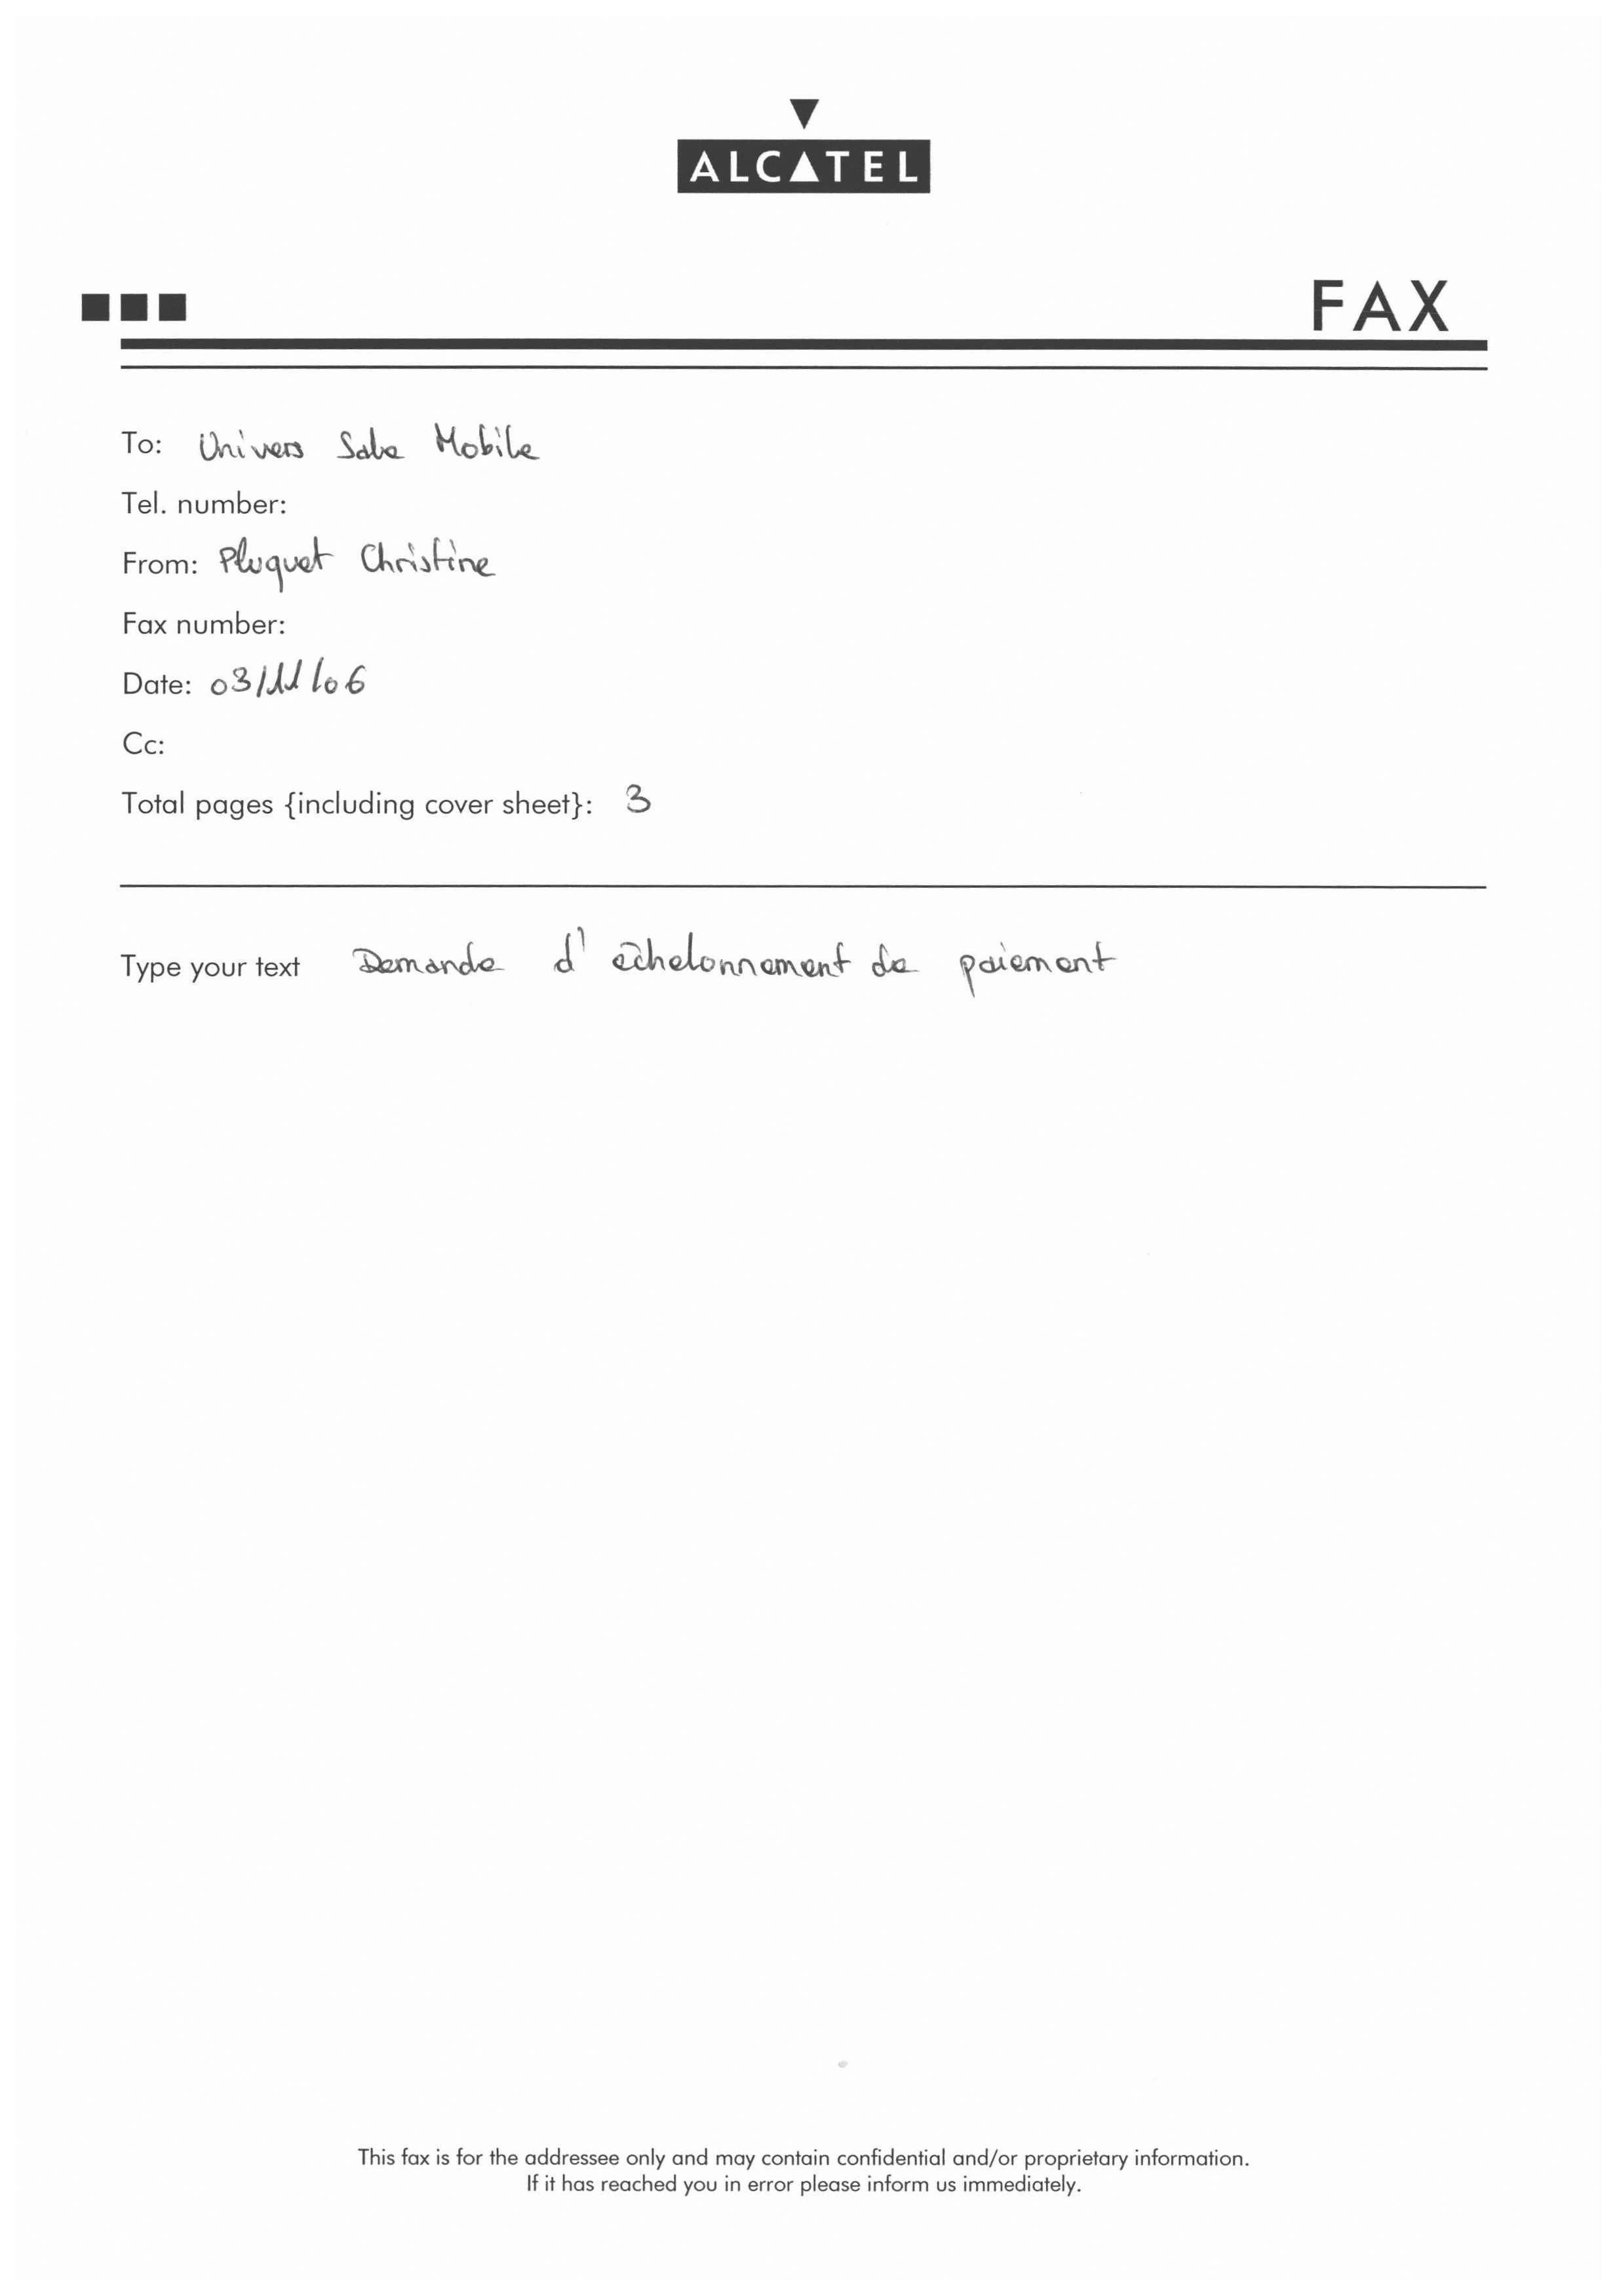 ALCATEL
FAX
To: Univers Sale Mobile
Tel. number:
From: Pluquet Christine
Fax number:
Date: 03/11/06
Cc:
Total pages {including cover sheet}: 3
Type your text Demande d'échelonnement de paiement
This fax is for the addressee only and may contain confidential and/or proprietary information.
If it has reached you in error please inform us immediately.